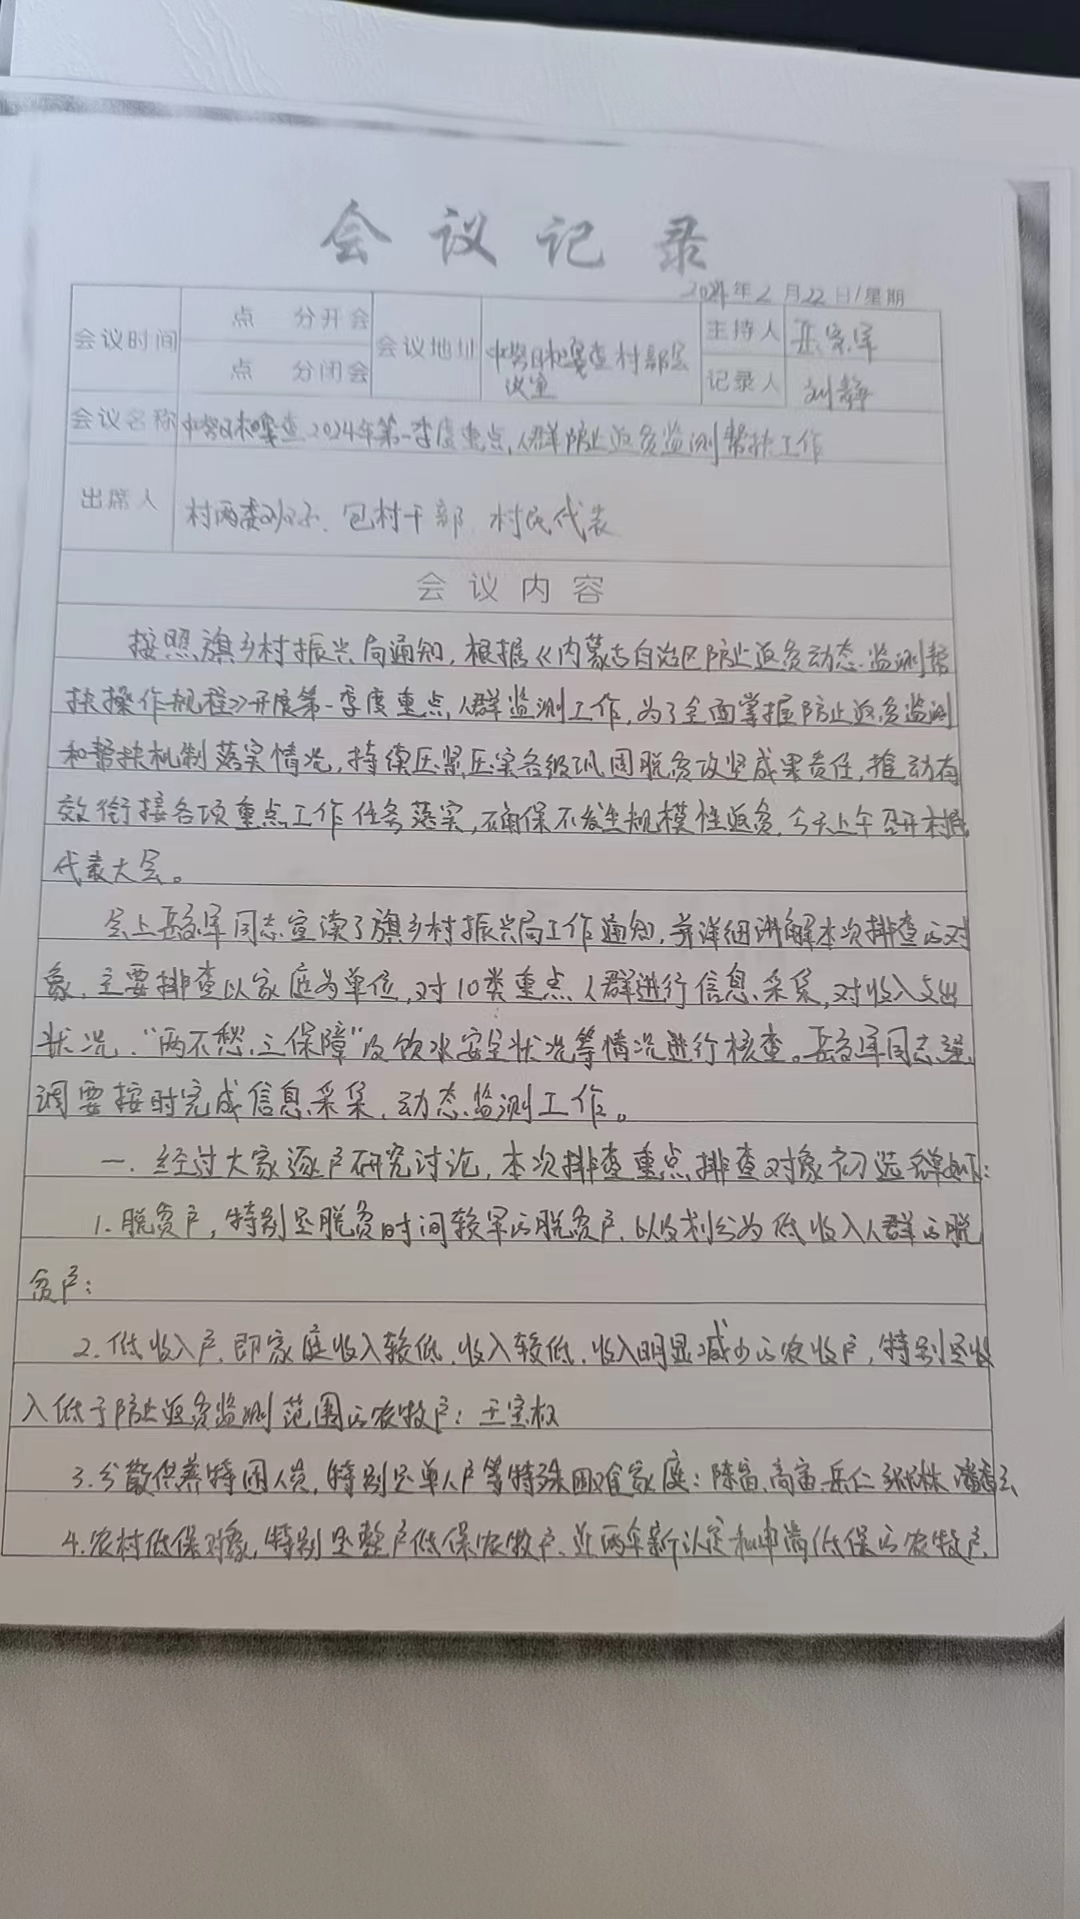 会议记录
2024年2月22日/星期
会议时间 点 分开会 会议地址 村部会 主持人
点 分闭会 议室 记录人 刘静
会议名称 2024年第一季度重点人群防止返贫监测帮扶工作
出席人 村两委班子、包村干部、村民代表
会议内容
按照旗乡村振兴局通知，根据《内蒙古自治区防止返贫动态监测帮
扶操作规程》开展第一季度重点人群监测工作，为了全面掌握防止返贫监测
和帮扶机制落实情况，持续压紧压实各级巩固脱贫攻坚成果责任，推动有
效衔接各项重点工作任务落实，确保不发生规模性返贫，今天上午召开村民
代表大会。
会上同志宣读了旗乡村振兴局工作通知，并详细讲解本次排查的对
象，主要排查以家庭为单位，对10类重点人群进行信息采集，对收入支出
状况、“两不愁、三保障”及饮水安全状况等情况进行核查。同志强
调要按时完成信息采集、动态监测工作。
一、经过大家逐户研究讨论，本次排查重点排查对象初选名单如下：
1.脱贫户，特别是脱贫时间较早的脱贫户、以及划分为低收入人群的脱
贫户：
2.低收入户，即家庭收入较低、收入较低、收入明显减少的农牧户，特别是收
入低于防止返贫监测范围的农牧户：王宝权
3.分散供养特困人员，特别是单人户等特殊困难家庭：陈富、高富、岳仁
4.农村低保对象，特别是整户低保农牧户、近两年新认定和申请低保的农牧户，